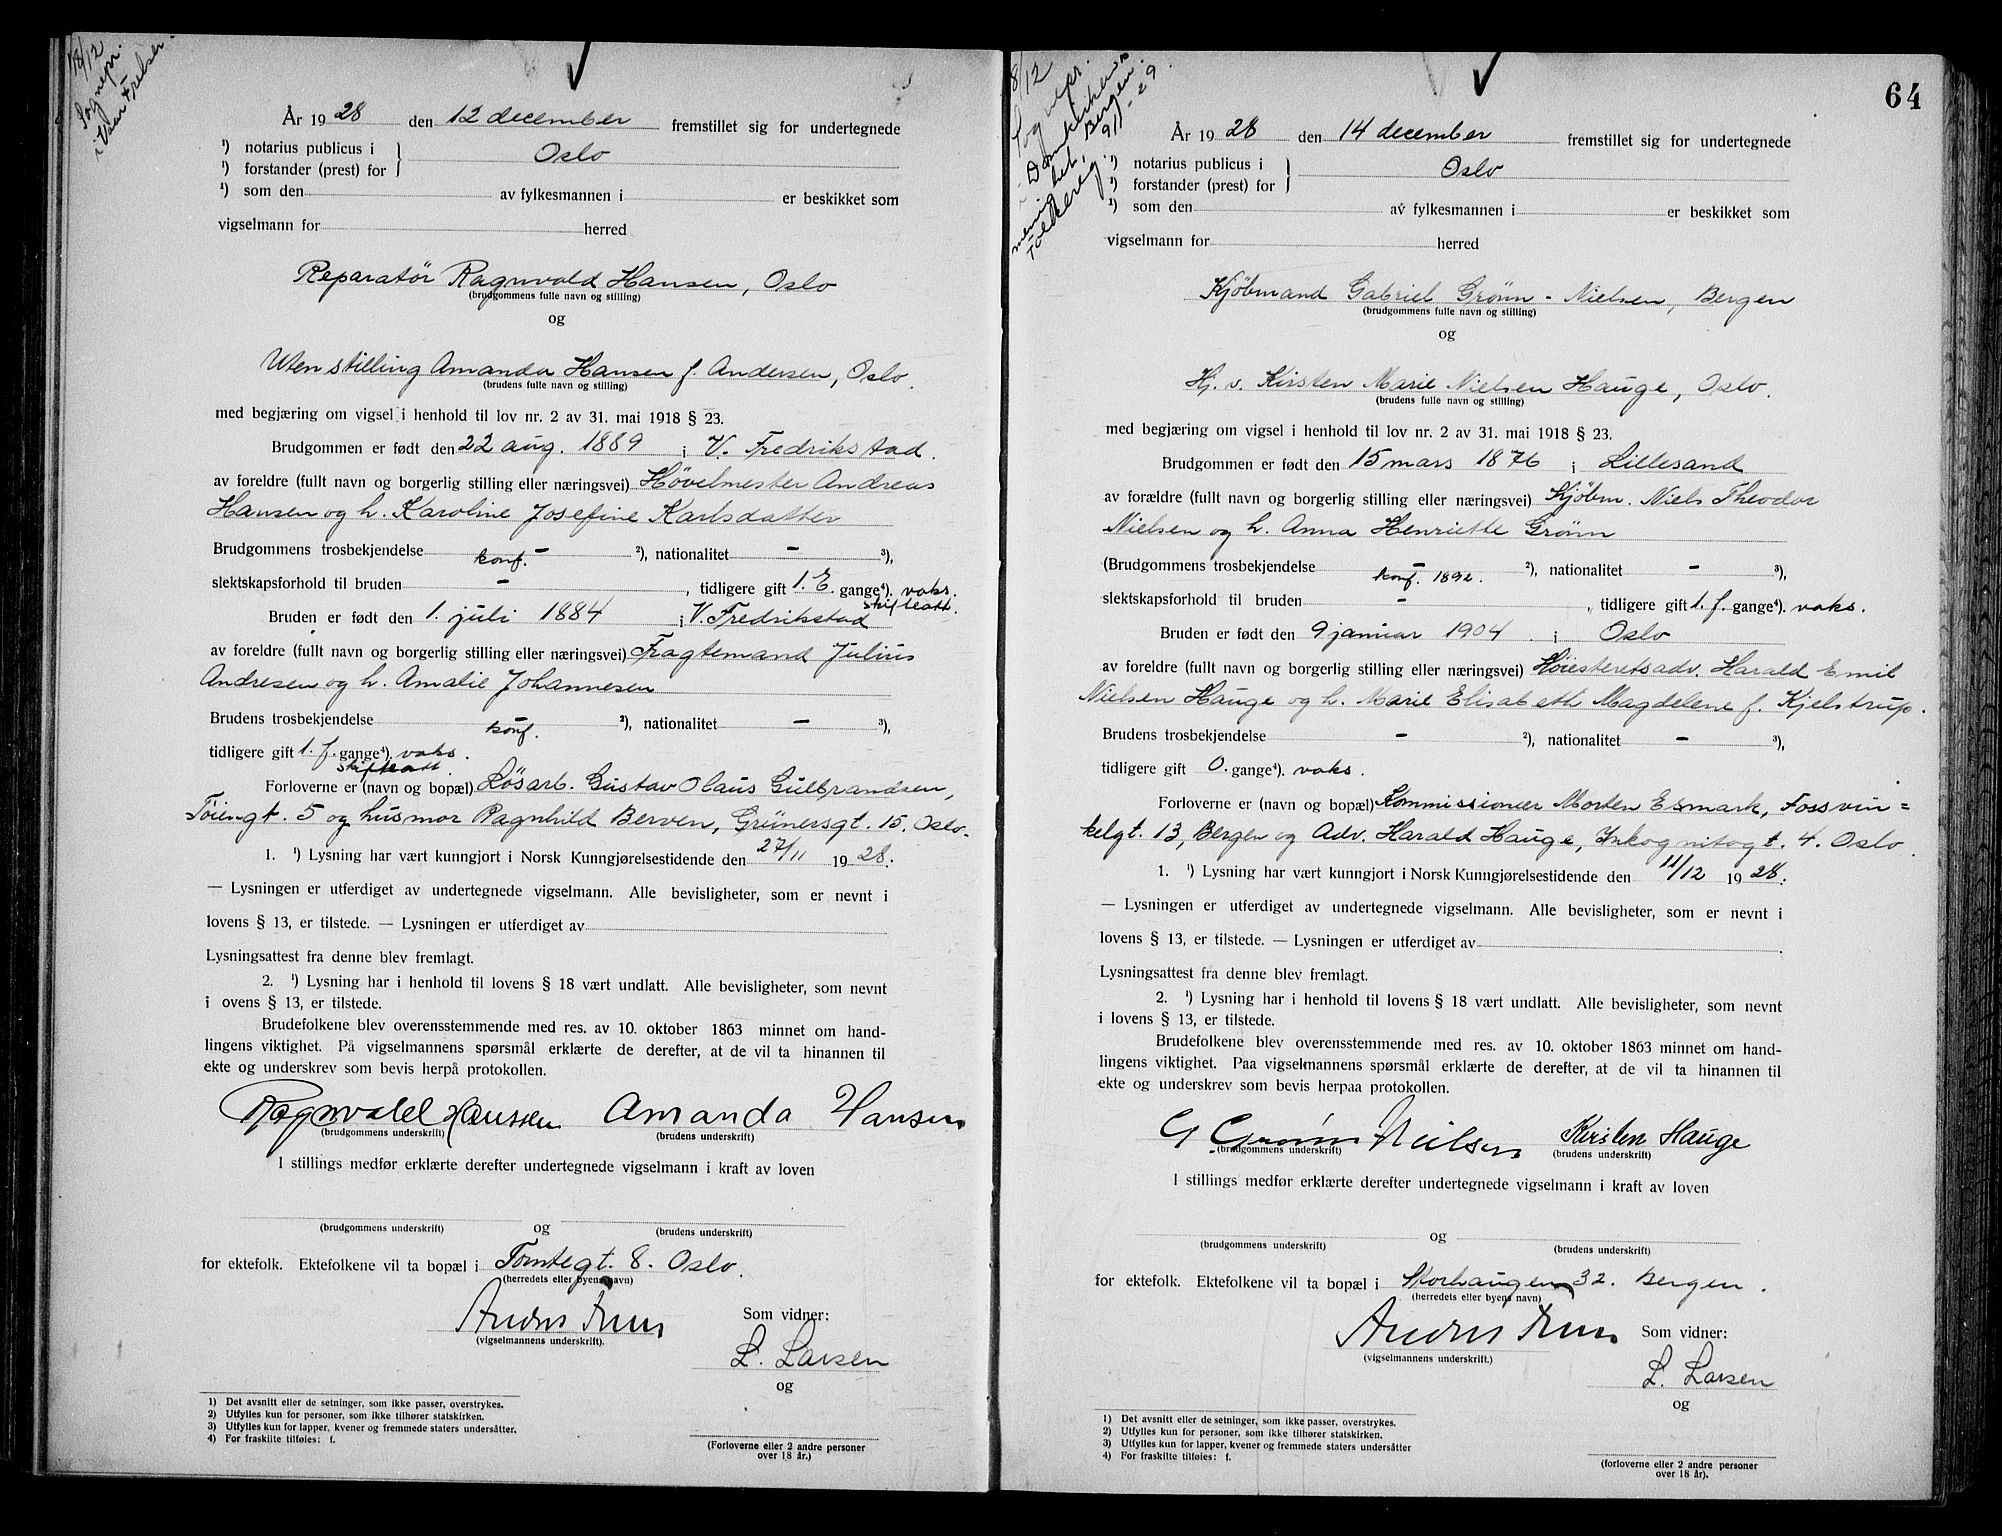 18/12
Sognepr.
i Vår Frelser.
År 1928 den 12 december fremstillet sig for undertegnede
¹) notarius publicus i } Oslo
¹) forstander (prest) for
¹) som den av fylkesmannen i er beskikket som
vigselmann for herred
Reparatør Ragnvald Hansen, Oslo
(brudgommens fulle navn og stilling)
og
Uten stilling Amanda Hansen f. Andersen, Oslo.
(brudens fulle navn og stilling)
med begjæring om vigsel i henhold til lov nr. 2 av 31. mai 1918 § 23.
Brudgommen er født den 22 aug. 1889 i V. Fredrikstad.
av foreldre (fullt navn og borgerlig stilling eller næringsvei) Høvelmester Andreas
Hansen og h. Karoline Josefine Karlsdatter
Brudgommens trosbekjendelse – ²), nationalitet – ³),
konf.
slektskapsforhold til bruden – , tidligere gift 1. E. gange⁴). vaks.
skifteatt.
Bruden er født den 1. juli 1884 i V. Fredrikstad
av foreldre (fullt navn og borgerlig stilling eller næringsvei) Fragtemand Julius
Andresen og h. Amalie Johannesen
Brudens trosbekjendelse – ²), nationalitet – ³),
konf.
tidligere gift 1. f. gange⁴). vaks.
skifteatt.
Forloverne er (navn og bopæl) Løsarb. Gustav Olaus Gulbrandsen,
Tøiengt. 5 og husmor Ragnhild Berven, Grünersgt. 15. Oslo.
1. ¹) Lysning har vært kunngjort i Norsk Kunngjørelsestidende den 27/11 1928.
— Lysningen er utferdiget av undertegnede vigselmann. Alle bevisligheter, som er nevnt i
lovens § 13, er tilstede. — Lysningen er utferdiget av
Lysningsattest fra denne blev fremlagt.
2. ¹) Lysning har i henhold til lovens § 18 vært undlatt. Alle bevisligheter, som nevnt
i ovens § 13, er tilstede.
Brudefolkene blev overensstemmende med res. av 10. oktober 1863 minnet om hand-
lingens viktighet. På vigselmannens spørsmål erklærte de derefter, at de vil ta hinannen til
ekte og underskrev som bevis herpå protokollen.
Ragnvald Hanssen Amanda Hansen
(brudgommens underskrift) (brudens underskrift)
I stillings medfør erklærte derefter undertegnede vigselmann i kraft av loven
og
(brudgommens underskrift) (brudens underskrift)
for ektefolk. Ektefolkene vil ta bopæl i Tomtegt. 8. Oslo.
(herredets eller byens navn)
Som vidner:
(vigselmannens underskrift).
L. Larsen
og
1) Det avsnitt eller de setninger, som ikke passer, overstrykes.
2) Utfylles kun for personer, som ikke tilhører statskirken.
3) Utfylles kun for lapper, kvener og fremmede staters undersåtter.
4) For fraskilte tilføies: f.
(Forloverne eller 2 andre personer
over 18 år.)
64
8/12
Sognepr.
Domkirkens
menighet, Bergen.
9/1 - 29.
År 1928 den 14 december fremstillet sig for undertegnede
¹) notarius publicus i } Oslo
¹) forstander (prest) for
¹) som den av fylkesmannen i er beskikket som
vigselmann for herred
Kjøbmand Gabriel Grønn-Nielsen, Bergen
(brudgommens fulle navn og stilling)
og
Hj. v. Kirsten Marie Nielsen Hauge, Oslo.
(brudens fulle navn og stilling)
med begjæring om vigsel i henhold til lov nr. 2 av 31. mai 1918 § 23.
Brudgommen er født den 15 mars 1876 i Lillesand
av forældre (fullt navn og borgerlig stilling eller næringsvei) Kjøbm. Niels Theodor
Nielsen og h. Anna Henriette Grønn
(Brudgommens trosbekjendelse ²), nationalitet – ³),
konf. 1892.
slektskapsforhold til bruden – , tidligere gift 1. f. gange⁴). vaks.
Bruden er født den 9 januar 1904. i Oslo
av foreldre (fullt navn og borgerlig stilling eller næringsvei) Høiesteretsadv. Harald Emil
Nielsen Hauge og h. Marie Elisabeth Magdelene f. Kjelstrup.
Brudens trosbekjendelse – ²), nationalitet – ³),
tidligere gift 0. gange⁴). vaks.
Forloverne er (navn og bopæl) Kommissioner Morten Esmark, Fossvin=
kelgt. 13, Bergen og Adv. Harald Hauge, Inkognitogt. 4. Oslo.
1. ¹) Lysning har vært kunngjort i Norsk Kunngjørelsestidende den 11/12 1928.
— Lysningen er utferdiget av undertegnede vigselmann. Alle bevisligheter, som er nevnt i
lovens § 13, er tilstede. — Lysningen er utferdiget av
Lysningsattest fra denne blev fremlagt.
2. ¹) Lysning har i henhold til lovens § 18 vært undlatt. Alle bevisligheter, som nevnt
i lovens § 13, er tilstede.
Brudefolkene blev overensstemmende med res. av 10. oktober 1863 minnet om hand-
lingens viktighet. Paa vigselmannens spørsmål erklærte de derefter, at de vil ta hinannen til
ekte og underskrev som bevis herpaa protokollen.
G Grønn Nielsen Kirsten Hauge
(brudgommens underskrift) (brudens underskrift)
I stillings medfør erklærte derefter undertegnede vigselmann i kraft av loven
og
(brudgommens underskrift) (brudens underskrift)
for ektefolk. Ektefolkene vil ta bopæl i Storhaugen 32. Bergen.
(herredets eller byens navn)
Som vidner:
(vigselmannens underskrift.)
L. Larsen
og
1) Det avsnitt eller de setninger, som ikke passer, overstrykes.
2) Utfylles kun for personer, som ikke tilhører statskirken.
3) Utfylles kun for lapper, kvener og fremmede staters undersåtter
4) For fraskilte tilføies: f.
(forloverne eller 2 andre personer
over 18 år).